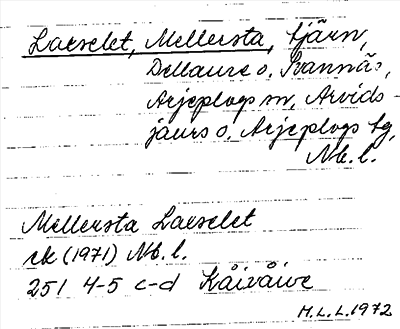 Laeselet, Mellersta, tjärn,
Dellaure o. Svannäs,
Arjeplogs sn, Arvids-
jaurs o. Arjeplogs tg,
Nb. l.
Mellersta Laeselet
ek (1971) Nb. l.
251 4-5 c-d Kåivåive
H.L.L. 1972